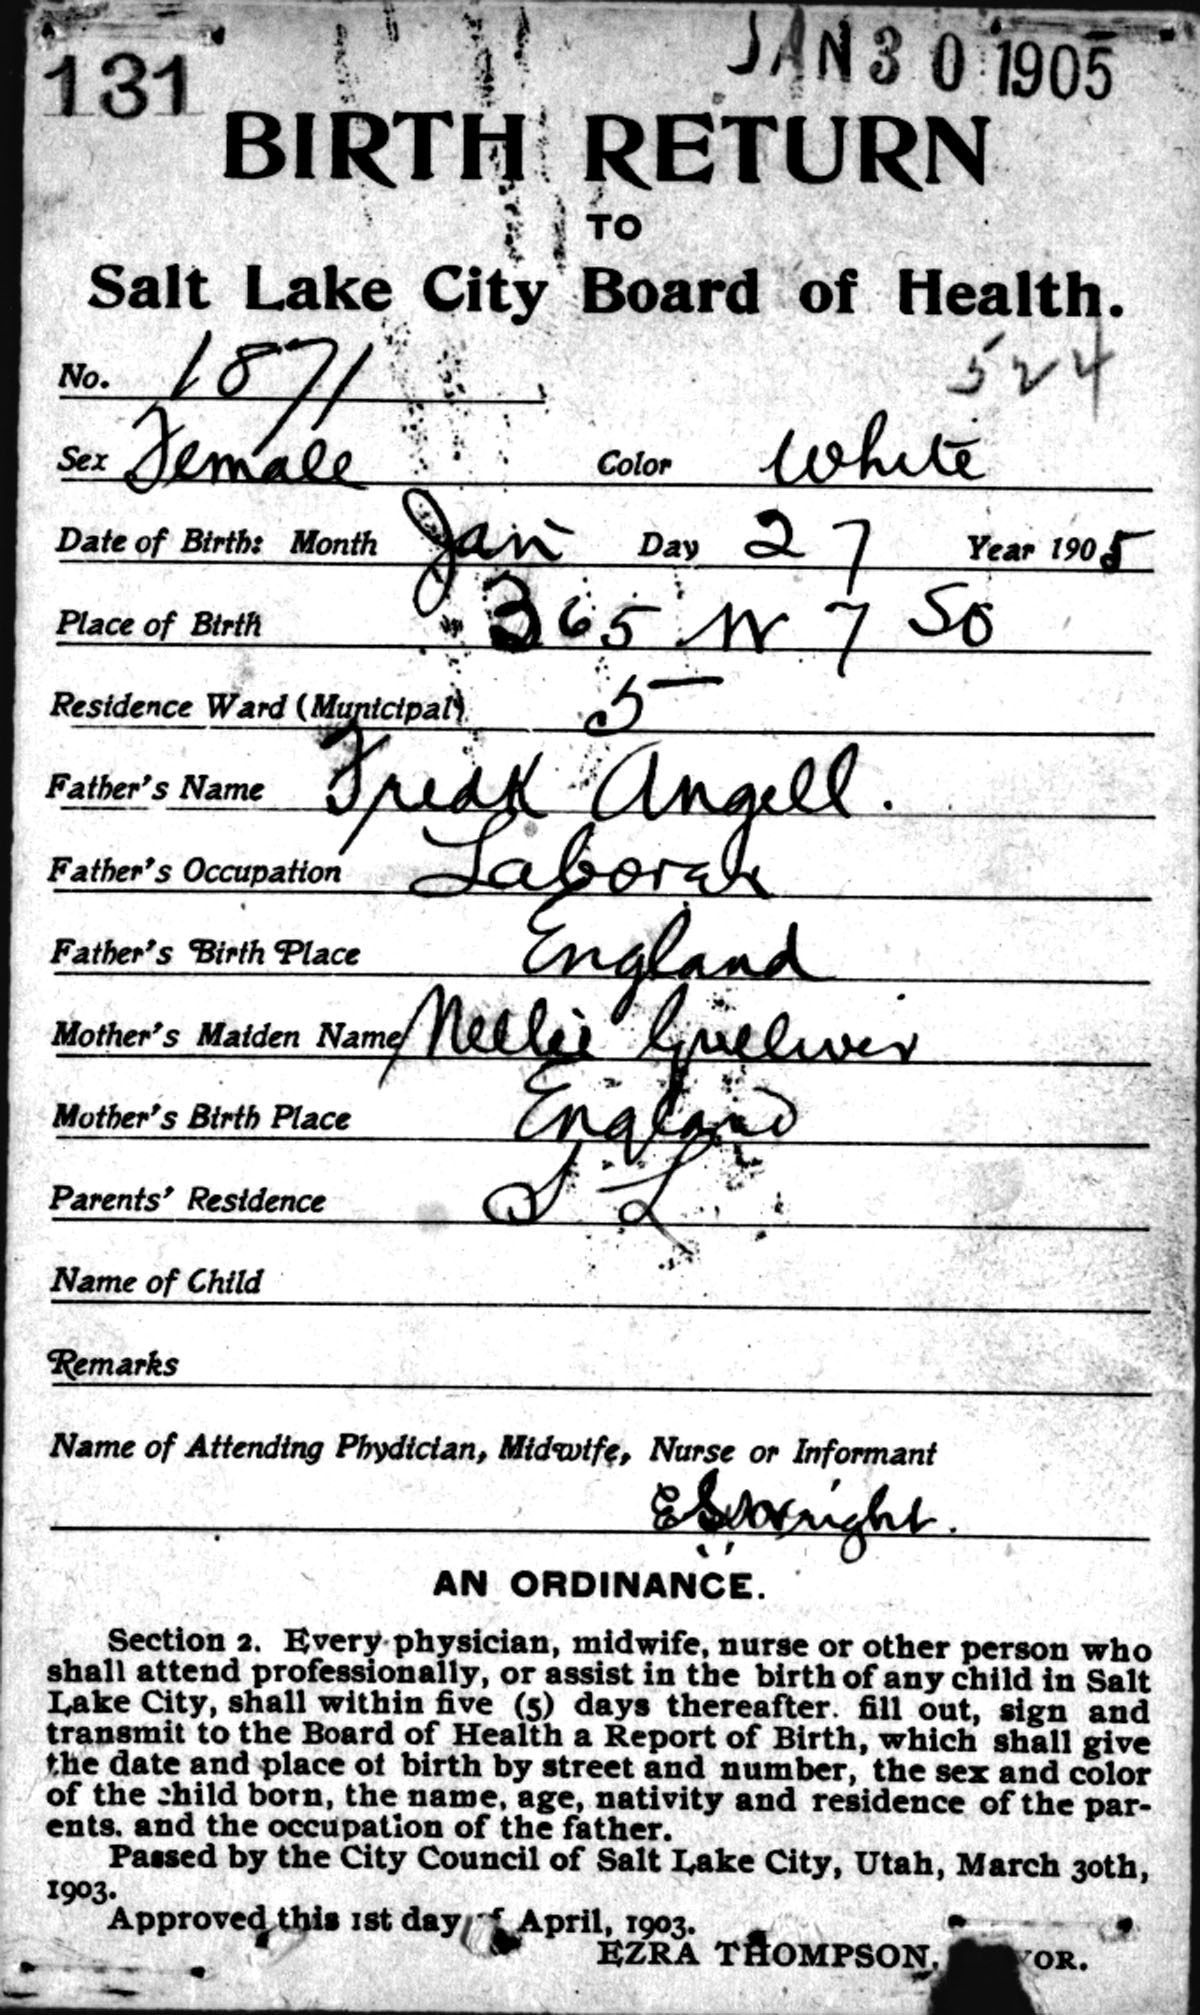 131
JAN 30 1905
BIRTH RETURN
TO
Salt Lake City Board of Health.
524
No. 1871
Sex Female Color White
Date of Birth: Month Jan Day 27 Year 1905
Place of Birth 365 W 7 So
Residence Ward (Municipal) 5
Father's Name Fredk Angell.
Father's Occupation Laborer
Father's Birth Place England
Mother's Maiden Name Nellie Gulliver
Mother's Birth Place England
Parents' Residence S L
Name of Child
Remarks
Name of Attending Phydician, Midwife, Nurse or Informant
E S Wright.
AN ORDINANCE.
Section 2. Every physician, midwife, nurse or other person who
shall attend professionally, or assist in the birth of any child in Salt
Lake City, shall within five (5) days thereafter. fill out, sign and
transmit to the Board of Health a Report of Birth, which shall give
the date and place of birth by street and number, the sex and color
of the child born, the name, age, nativity and residence of the par-
ents. and the occupation of the father.
Passed by the City Council of Salt Lake City, Utah, March 30th,
1903.
Approved this 1st day of April, 1903.
EZRA THOMPSON, YOR.